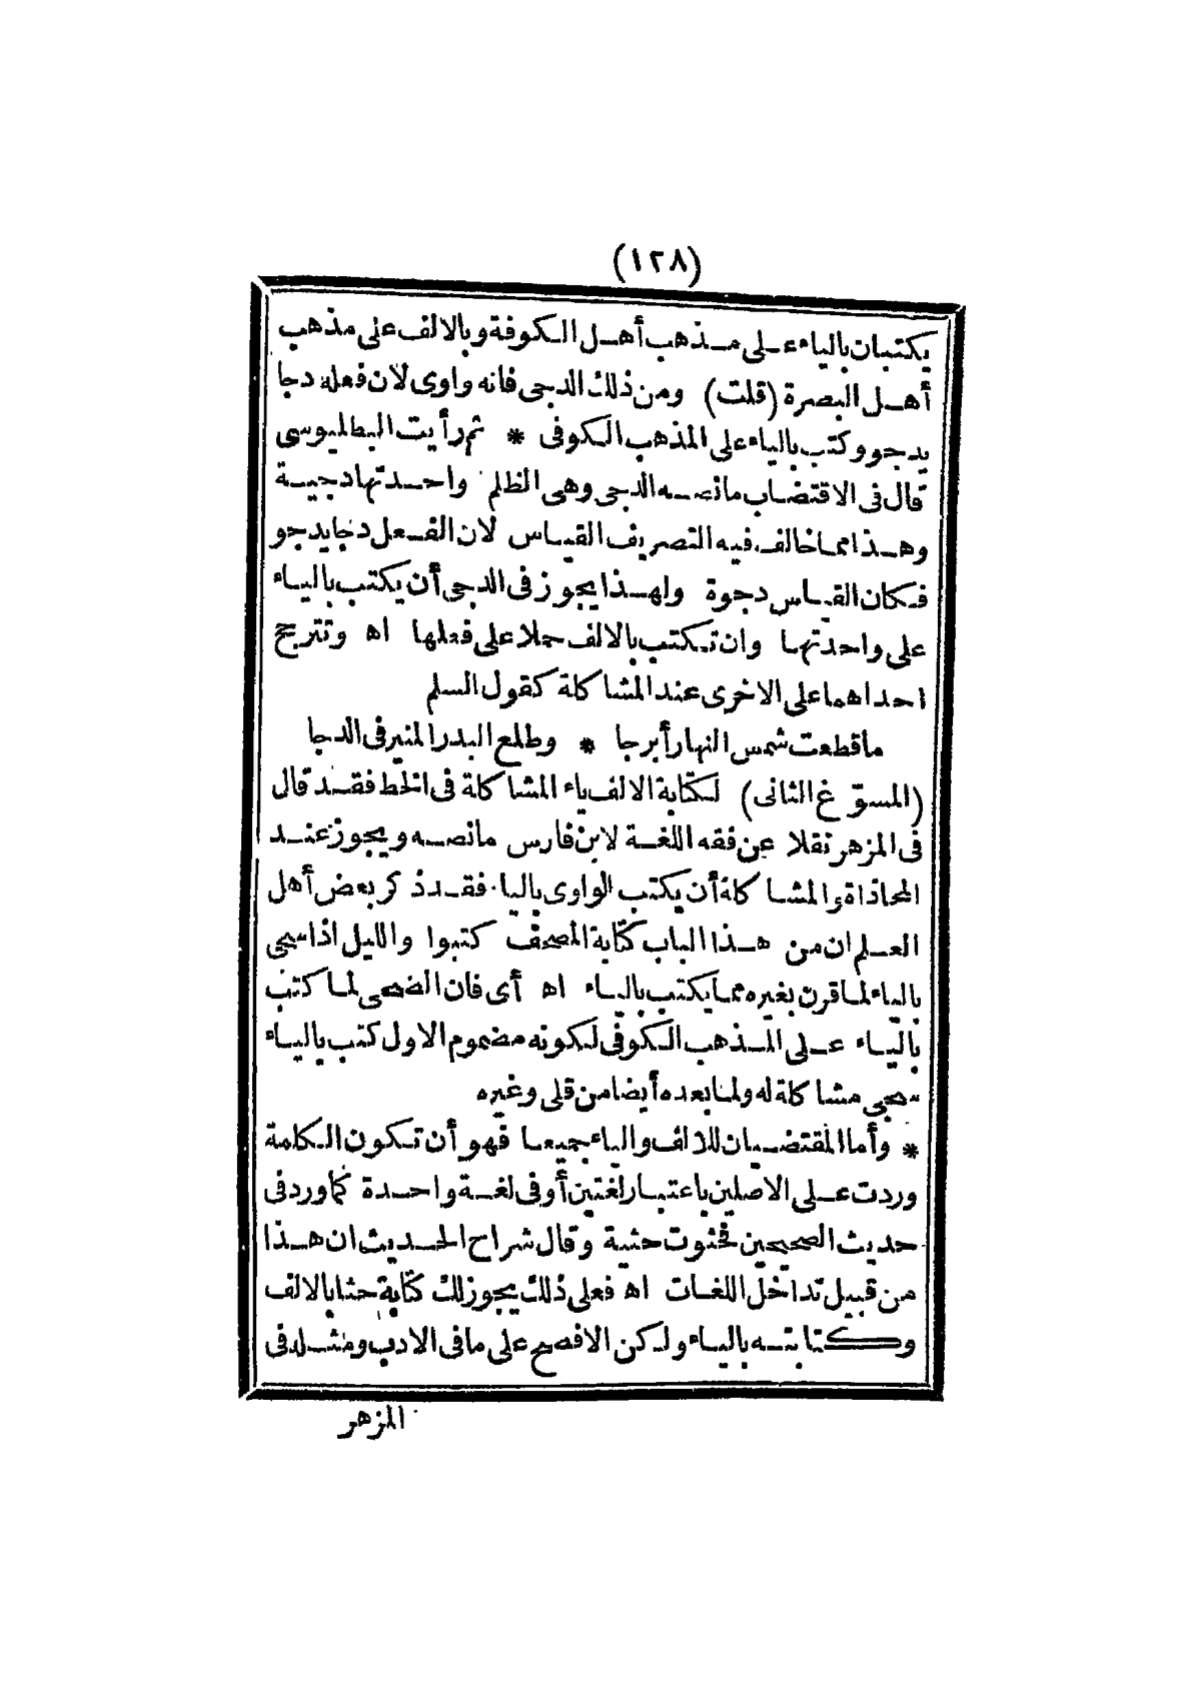 (١٢٨)
يكتبان بالياء على مذهب أهل الكوفة وبالالف على مذهب
أهل البصرة (قلت) ومن ذلك الدجى فانه واوى لان فعله دجا
يدجو وكتب بالياء على المذهب الكوفى * ثم رأيت البطليوسى
قال فى الاقتضاب مانصه الدجى وهى الظلم واحدتها دجية
وهذا مما خالف فيه التصريف القياس لان الفعل دجا يدجو
فكان القياس دجوة ولهذا يجوز فى الدجى أن يكتب بالياء
على واحدتها وان تكتب بالالف حملا على فعلها اه وتترجح
احداهما على الاخرى عند المشاكلة كقول السلم
ماقطعت شمس النهار أبرجا * وطلع البدر المنير فى الدجا
(المسوّغ الثانى) لكتابة الالف ياء المشاكلة فى الخط فقد قال
فى المزهر نقلا عن فقه اللغة لابن فارس مانصه ويجوز عند
المحاذاة والمشاكلة أن يكتب الواوى باليا. فقد ذكر بعض أهل
العلم ان من هذا الباب كتابة المصحف كتبوا والليل اذا سجى
بالياء لما قرن بغيره مما يكتب بالياء اه أى فان الضحى لما كتب
بالياء على المذهب الكوفى لكونه مضموم الاول كتب بالياء
سجى مشاكلة له ولما بعده أيضا من قلى وغيره
* وأما المقتضيان للالف والياء جميعا فهو أن تكون الكلمة
وردت على الاصلين باعتبار لغتين أو فى لغة واحدة كما ورد فى
حديث الصحيحين فحثوت حثية وقال شراح الحديث ان هذا
من قبيل تداخل اللغات اه فعلى ذلك يجوز لك كتابة حثا بالالف
وكتابته بالياء ولكن الافصح على ما فى الادب ومثله فى
المزهر